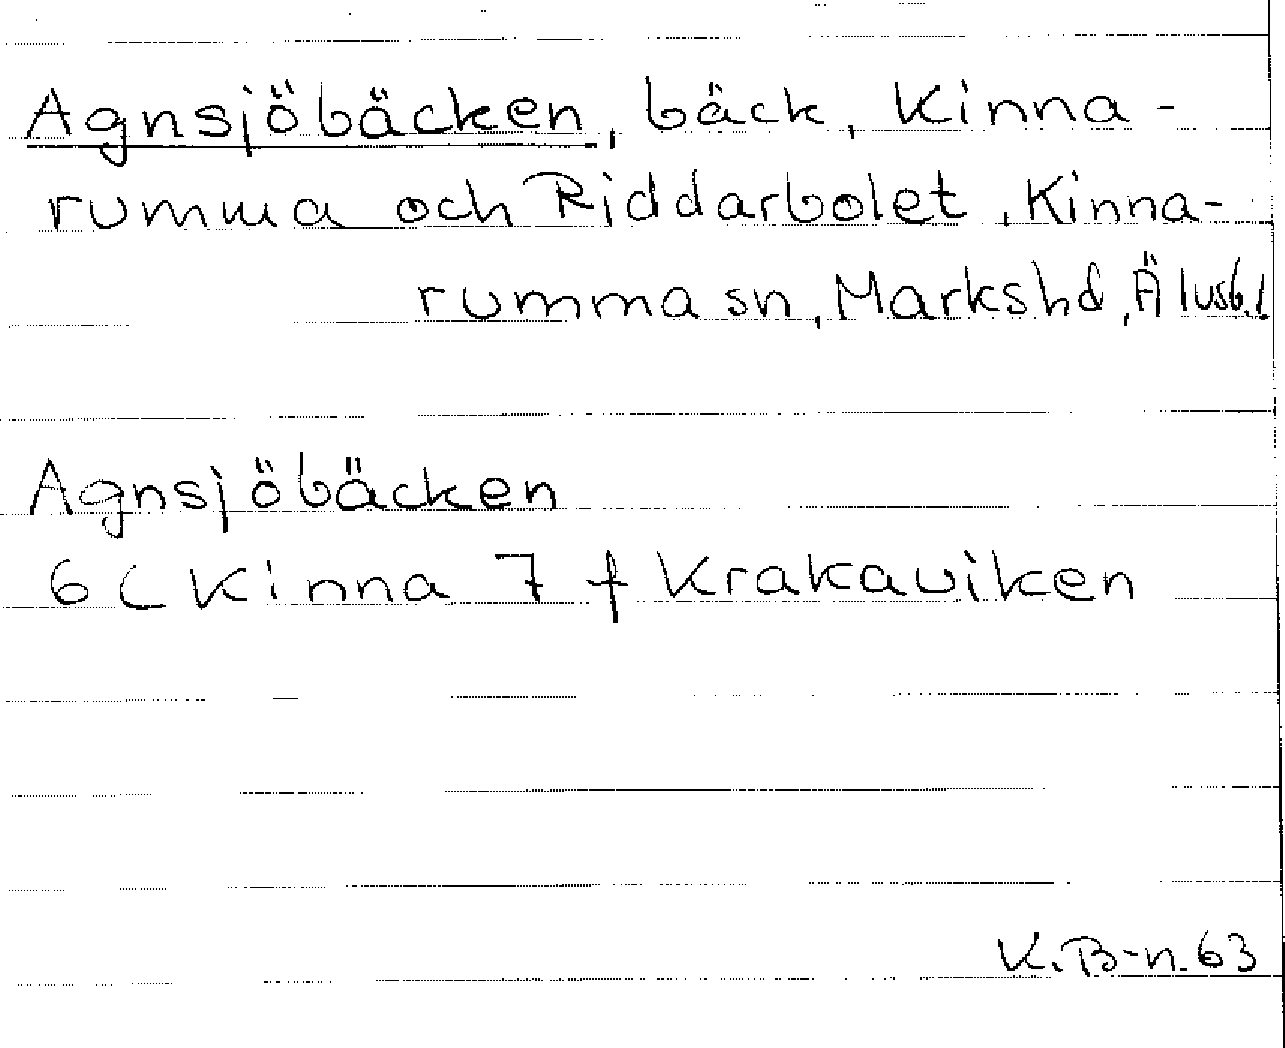 Agnsjöbäcken, bäck, Kinna-
rumma och Riddarbolet, Kinna-
rumma sn, Marks hd, Älvsb. l
Agnsjöbäcken
6 C Kinna 7 f Krakaviken
K. B-n. 63